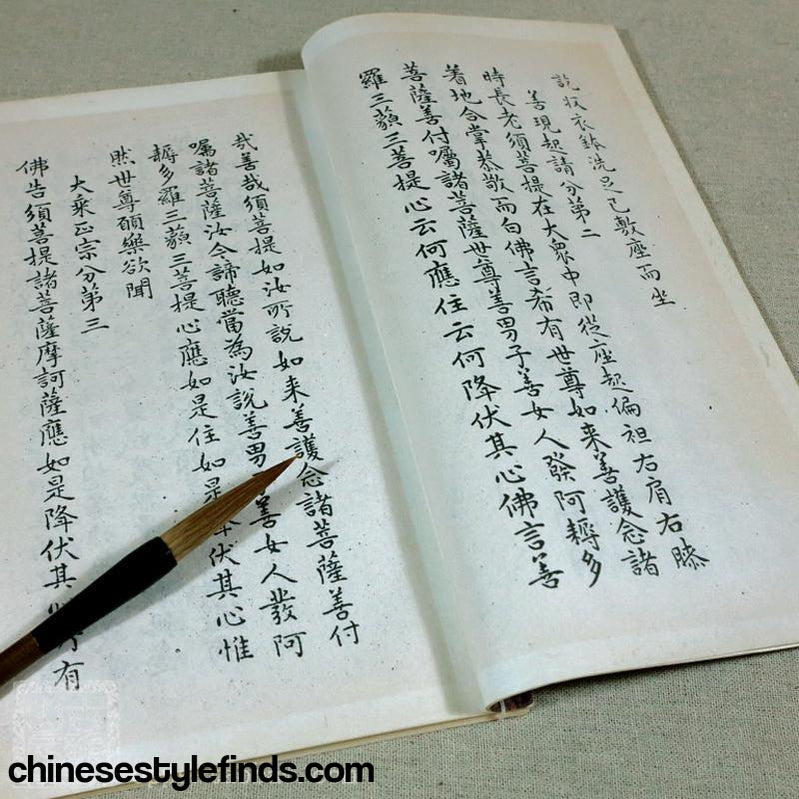 訖收衣鉢洗足已敷座而坐
善現起請分第二
時長老須菩提在大衆中即從座起偏袒右肩右膝
着地合掌恭敬而白佛言希有世尊如来善護念諸
菩薩善付囑諸菩薩世尊善男子善女人發阿耨多
羅三藐三菩提心云何應住云何降伏其心佛言善
哉善哉須菩提如汝所說如来善護念諸菩薩善付
囑諸菩薩汝今諦聽當為汝說善男子善女人發阿
耨多羅三藐三菩提心應如是住如是降伏其心惟
然世尊願樂欲聞
大乘正宗分第三
佛告須菩提諸菩薩摩訶薩應如是降伏其心所有
chinesestylefinds.com